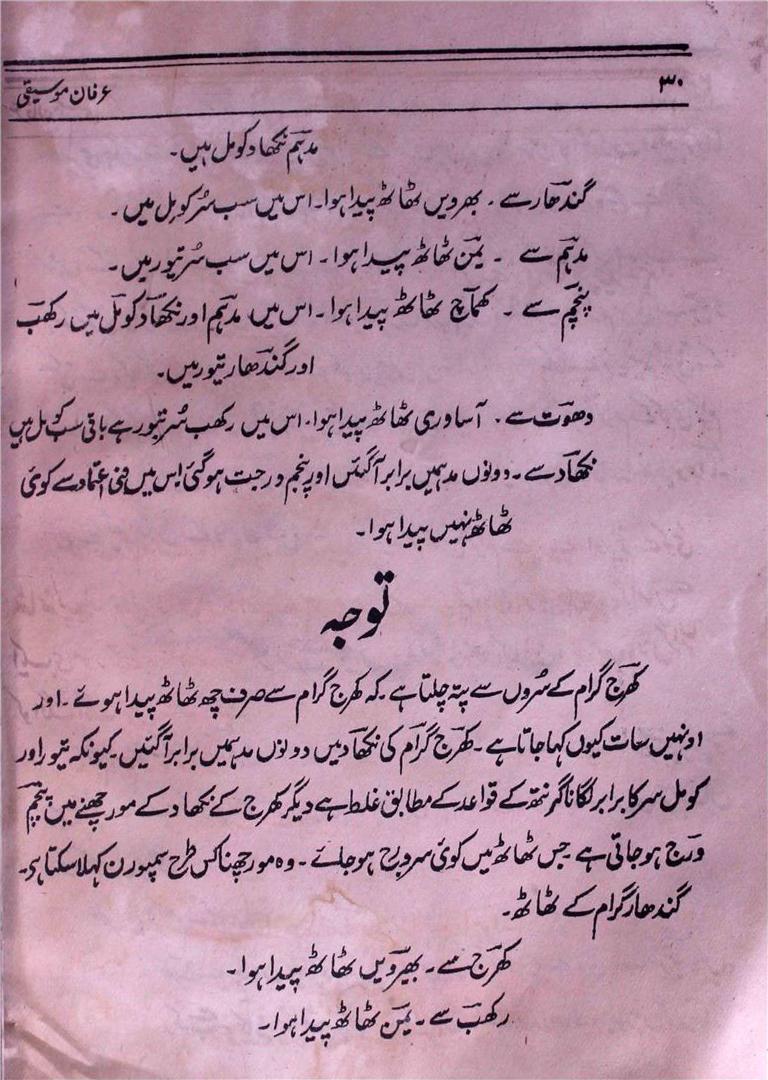 ۳۰
عرفان موسیقی
مدہم نکھاد کومل ہیں۔
گندھار سے ۔ بھرویں ٹھاٹھ پیدا ہوا۔ اس میں سب سُر کومل ہیں۔
مدہم سے ۔ یمن ٹھاٹھ پیدا ہوا ۔ اس میں سب سُر تیور ہیں۔
پنچم سے ۔ کھماچ ٹھاٹھ پیدا ہوا۔ اس میں مدہم اور نکھاد کومل ہیں رکھب
اور گندھار تیور ہیں۔
دھوت سے ۔ آساوری ٹھاٹھ پیدا ہوا۔ اس میں رکھب سُر تیور ہے باقی سب کومل ہیں
نکھاد سے ۔ دونوں مدہمیں برابر آگئیں اور پنچم ورجت ہو گئی اس میں فنی اعتماد سے کوئی
ٹھاٹھ نہیں پیدا ہوا۔
توجہ
کھرج گرام کے سُروں سے پتہ چلتا ہے کہ کھرج گرام سے صرف چھ ٹھاٹھ پیدا ہوئے ۔ اور
اونہیں سات کیوں کہا جاتا ہے ۔ کھرج گرام کی نکھاد میں دونوں مدہمیں برابر آگئیں ۔ کیونکہ تیور اور
کومل سر کا برابر لگانا گرنتھ کے قواعد کے مطابق غلط ہے دیگر کھرج کے نکھاد کے مورچھنے میں پنچم
ورج ہو جاتی ہے جس ٹھاٹھ میں کوئی سر ورج ہو جائے ۔ وہ مورچھنا کس طرح سمپورن کہلا سکتا ہے۔
گندھار گرام کے ٹھاٹھ۔
کھرج سے ۔ بھیرویں ٹھاٹھ پیدا ہوا۔
رکھب سے ۔ یمن ٹھاٹھ پیدا ہوا۔